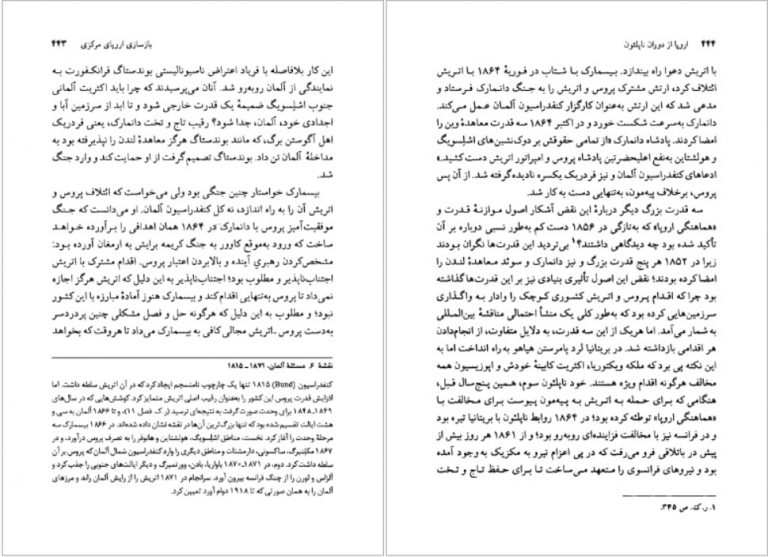 بازسازی اروپای مرکزی ۴۴۳
این کار بلافاصله با فریاد اعتراض ناسیونالیستی بوندستاگ فرانکفورت به
نمایندگی از آلمان روبه‌رو شد. آنان می‌پرسیدند که چرا باید اکثریت آلمانی
جنوب اشلسویگ ضمیمهٔ یک قدرت خارجی شود و تا ابد از سرزمین آبا و
اجدادی خود، آلمان، جدا شود؟ رقیب تاج و تخت دانمارک، یعنی فردریک
اهل آگوستن برگ، که مانند بوندستاگ هرگز معاهدهٔ لندن را نپذیرفته بود به
مداخلهٔ آلمان تن داد. بوندستاگ تصمیم گرفت از او حمایت کند و وارد جنگ
شود.
بیسمارک خواستار چنین جنگی بود ولی می‌خواست که ائتلاف پروس و
اتریش آن را به راه اندازد، نه کل کنفدراسیون آلمان. او می‌دانست که جنگ
موفقیت‌آمیز پروس با دانمارک در ۱۸۶۴ همان اهدافی را برآورده خواهد
ساخت که ورود به‌موقع کاوور به جنگ کریمه برایش به ارمغان آورده بود:
مشخص‌کردن رهبری آینده و بالابردن اعتبار پروس. اقدام مشترک با اتریش
اجتناب‌ناپذیر و مطلوب بود؛ اجتناب‌ناپذیر به این دلیل که اتریش هرگز اجازه
نمی‌داد تا پروس به‌تنهایی اقدام کند و بیسمارک هنوز آمادهٔ مبارزه با این کشور
نبود؛ و مطلوب به این دلیل که هرگونه حل و فصل مشکلی چنین پردردسر
به‌دست پروس ـ اتریش مجالی کافی به بیسمارک می‌داد تا هروقت که بخواهد
نقشهٔ ۶. مسئلهٔ آلمان، ۱۸۷۱ ـ ۱۸۱۵
کنفدراسیون (Bund) ۱۸۱۵ تنها یک چارچوب نامنسجم ایجاد کرد که در آن اتریش سلطه داشت. اما
افزایش قدرت پروس این کشور را به‌عنوان رقیب اصلی اتریش متمایز کرد. کوشش‌هایی که در سال‌های
۱۸۴۹ـ۱۸۴۸ برای وحدت صورت گرفت به نتیجه‌ای نرسید (ر. ک. فصل ۱۱)، و تا ۱۸۶۶ آلمان به سی و
هشت ایالت تقسیم شده بود که تنها بزرگ‌ترین آن‌ها در نقشه نشان داده شده‌اند. در ۱۸۶۶ بیسمارک سه
مرحلهٔ وحدت را آغاز کرد. نخست، مناطق اشلسویگ، هولشتاین و هانوفر را به تصرف پروس درآورد، و در
۱۸۶۷ مکلنبرگ، ساکسونی، دارمشتات و مناطق دیگری را وارد کنفدراسیون شمال آلمان که پروس بر آن
سلطه داشت کرد. دوم، در ۱۸۷۱ـ۱۸۷۰ باواریا، بادن، وورتمبرگ و دیگر ایالت‌های جنوبی را جذب کرد و
آلزاس و لورن را از چنگ فرانسه بیرون آورد. سرانجام در ۱۸۷۱ اتریش را از رایش آلمان راند و مرزهای
آلمان را به همان صورتی که تا ۱۹۱۸ دوام آورد تعیین کرد.
۴۴۴ اروپا از دوران ناپلئون
با اتریش دعوا راه بیندازد. بیسمارک با شتاب در فوریهٔ ۱۸۶۴ با اتریش
ائتلاف کرد، ارتش مشترک پروس و اتریش را به جنگ دانمارک فرستاد و
مدعی شد که این ارتش به‌عنوان کارگزار کنفدراسیون آلمان عمل می‌کند.
دانمارک به‌سرعت شکست خورد و در اکتبر ۱۸۶۴ سه قدرت معاهدهٔ وین را
امضا کردند. پادشاه دانمارک «از تمامی حقوقش بر دوک‌نشین‌های اشلسویگ
و هولشتاین به‌نفع اعلیحضرتین پادشاه پروس و امپراتور اتریش دست کشید.»
ادعاهای کنفدراسیون آلمان و نیز فردریک یکسره نادیده گرفته شد. از آن پس
پروس، برخلاف پیه‌مون، به‌تنهایی دست به کار شد.
سه قدرت بزرگ دیگر دربارهٔ این نقض آشکار اصول موازنهٔ قدرت و
«هماهنگی اروپا» که به‌تازگی در ۱۸۵۶ دست کم به‌طور نسبی دوباره بر آن
تأکید شده بود چه دیدگاهی داشتند؟۱ بی‌تردید این قدرت‌ها نگران بودند
زیرا در ۱۸۵۲ هر پنج قدرت بزرگ و نیز دانمارک و سوئد معاهدهٔ لندن را
امضا کرده بودند؛ نقض این اصول تأثیری بنیادی نیز بر این قدرت‌ها گذاشته
بود چرا که اقدام پروس و اتریش کشوری کوچک را وادار به واگذاری
سرزمین‌هایی کرده بود که به‌طور کلی یک منشأ احتمالی مناقشهٔ بین‌المللی
به شمار می‌آمد. اما هریک از این سه قدرت، به دلایل متفاوت، از انجام‌دادن
هر اقدامی بازداشته شد. در بریتانیا لرد پامرستن هیاهو به راه انداخت اما به
این نکته پی برد که ملکه ویکتوریا، اکثریت کابینهٔ خودش و اپوزیسیون همه
مخالف هرگونه اقدام ویژه هستند. خود ناپلئون سوم، همین پنج‌سال قبل،
هنگامی که برای حمله به اتریش به پیه‌مون پیوست برای مخالفت با
«هماهنگی اروپا» توطئه کرده بود؛ در ۱۸۶۴ روابط ناپلئون با بریتانیا تیره بود
و در فرانسه نیز با مخالفت فزاینده‌ای روبه‌رو بود؛ و از ۱۸۶۱ هر روز بیش از
پیش در باتلاقی فرو می‌رفت که در پی اعزام نیرو به مکزیک به وجود آمده
بود و نیروهای فرانسوی را متعهد می‌ساخت تا برای حفظ تاج و تخت
۱. ر. ک. ص ۳۴۵.